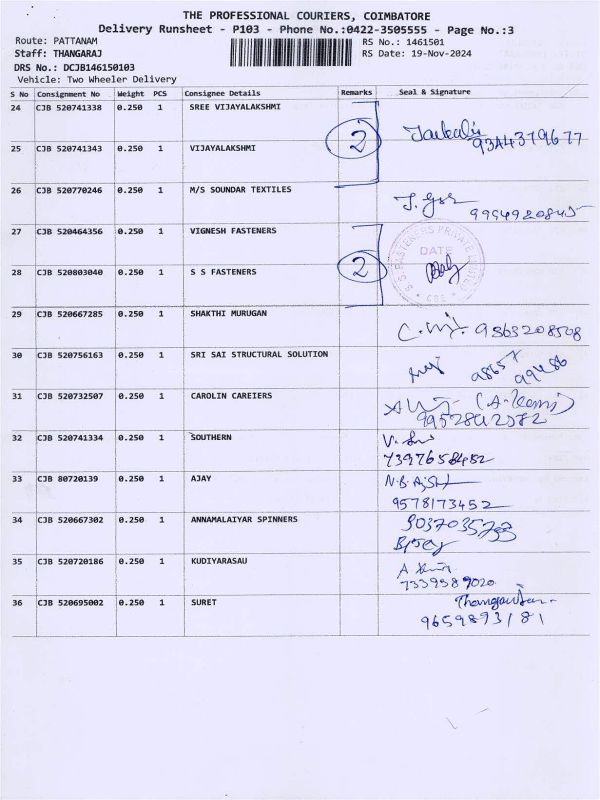 THE PROFESSIONAL COURIERS, COIMBATORE
Delivery Runsheet - P103 - Phone No.:0422-3505555 - Page No.:3
Route: PATTANAM
RS No.: 1461501
Staff: THANGARAJ
RS Date: 19-Nov-2024
DRS No.: DCJB146150103
Vehicle: Two Wheeler Delivery
S No Consignment No Weight PCS Consignee Details Remarks Seal & Signature
24 CJB 520741338 0.250 1 SREE VIJAYALAKSHMI
2
25 CJB 520741343 0.250 1 VIJAYALAKSHMI
26 CJB 520770246 0.250 1 M/S SOUNDAR TEXTILES
27 CJB 520464356 0.250 1 VIGNESH FASTENERS
DATE
2
28 CJB 520803040 0.250 1 S S FASTENERS
29 CJB 520667285 0.250 1 SHAKTHI MURUGAN
9363208508
30 CJB 520756163 0.250 1 SRI SAI STRUCTURAL SOLUTION
31 CJB 520732507 0.250 1 CAROLIN CAREIERS
32 CJB 520741334 0.250 1 SOUTHERN
7397658482
33 CJB 80720139 0.250 1 AJAY
9578173452
34 CJB 520667302 0.250 1 ANNAMALAIYAR SPINNERS
35 CJB 520720186 0.250 1 KUDIYARASAU
7339589020
36 CJB 520695002 0.250 1 SURET
9659893181